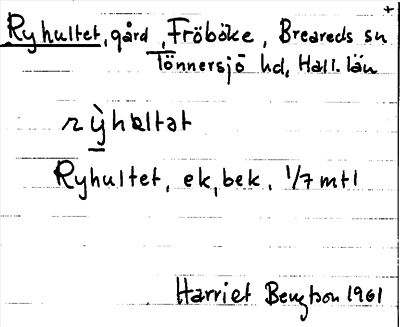 Ryhultet, gård, Fröböke, Breareds sn
Tönnersjö hd, Hall. län
rỳhɵltat
Ryhultet, ek, bek. 1/7 mtl
Harriet Bengtson 1961